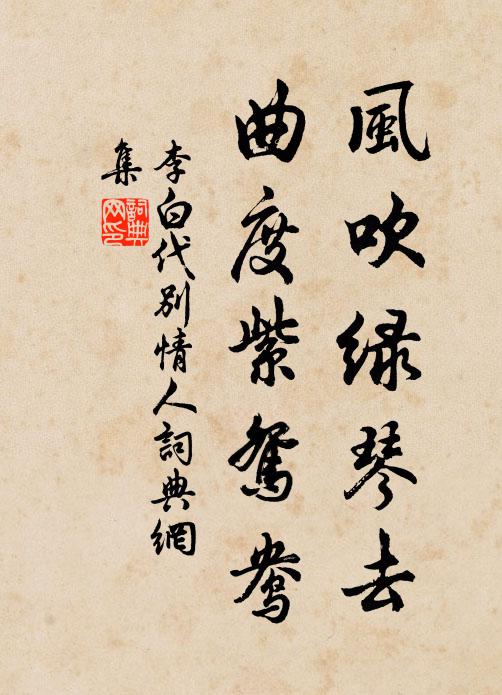 風吹緑琴去
曲度紫鴛鴦
李白代别情人詞典網
集
詞典
网印